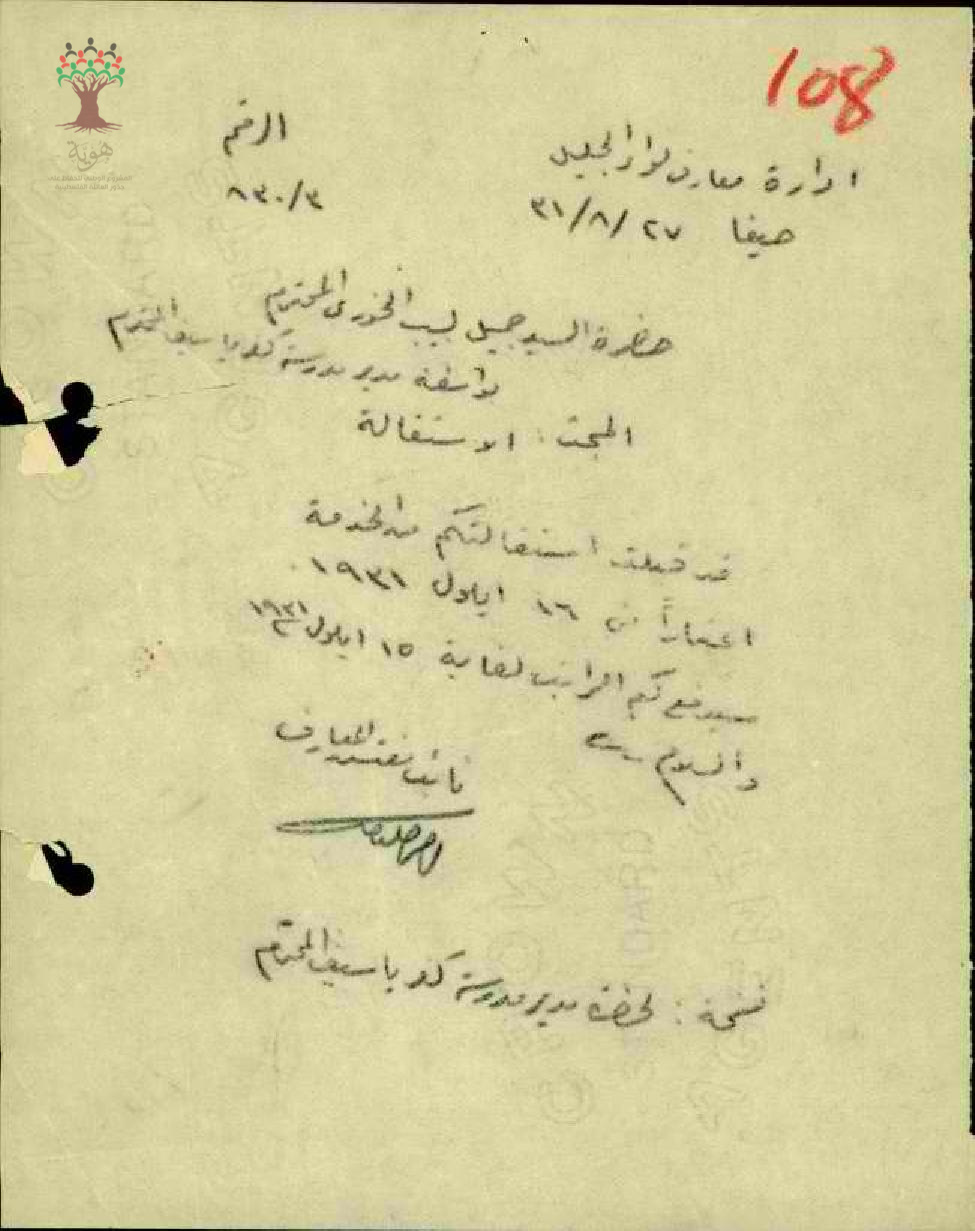 108
ادارة معارف لواء الجليل
الرقم
حيفا ٢٧/٨/٣١
٨٣٠/٣
حضرة السيد جميل لبيب الخوري المحترم
بواسطة مدير مدرسة كفر ياسيف المحترم
المبحث : الاستقالة
قد قبلت استقالتكم من الخدمة
اعتباراً من ١٦ ايلول ١٩٣١ .
سيدفع لكم الراتب لغاية ١٥ ايلول ١٩٣١
والسلام
نائب مفتش المعارف
نسخة : لحضرة مدير مدرسة كفر ياسيف المحترم
هوية